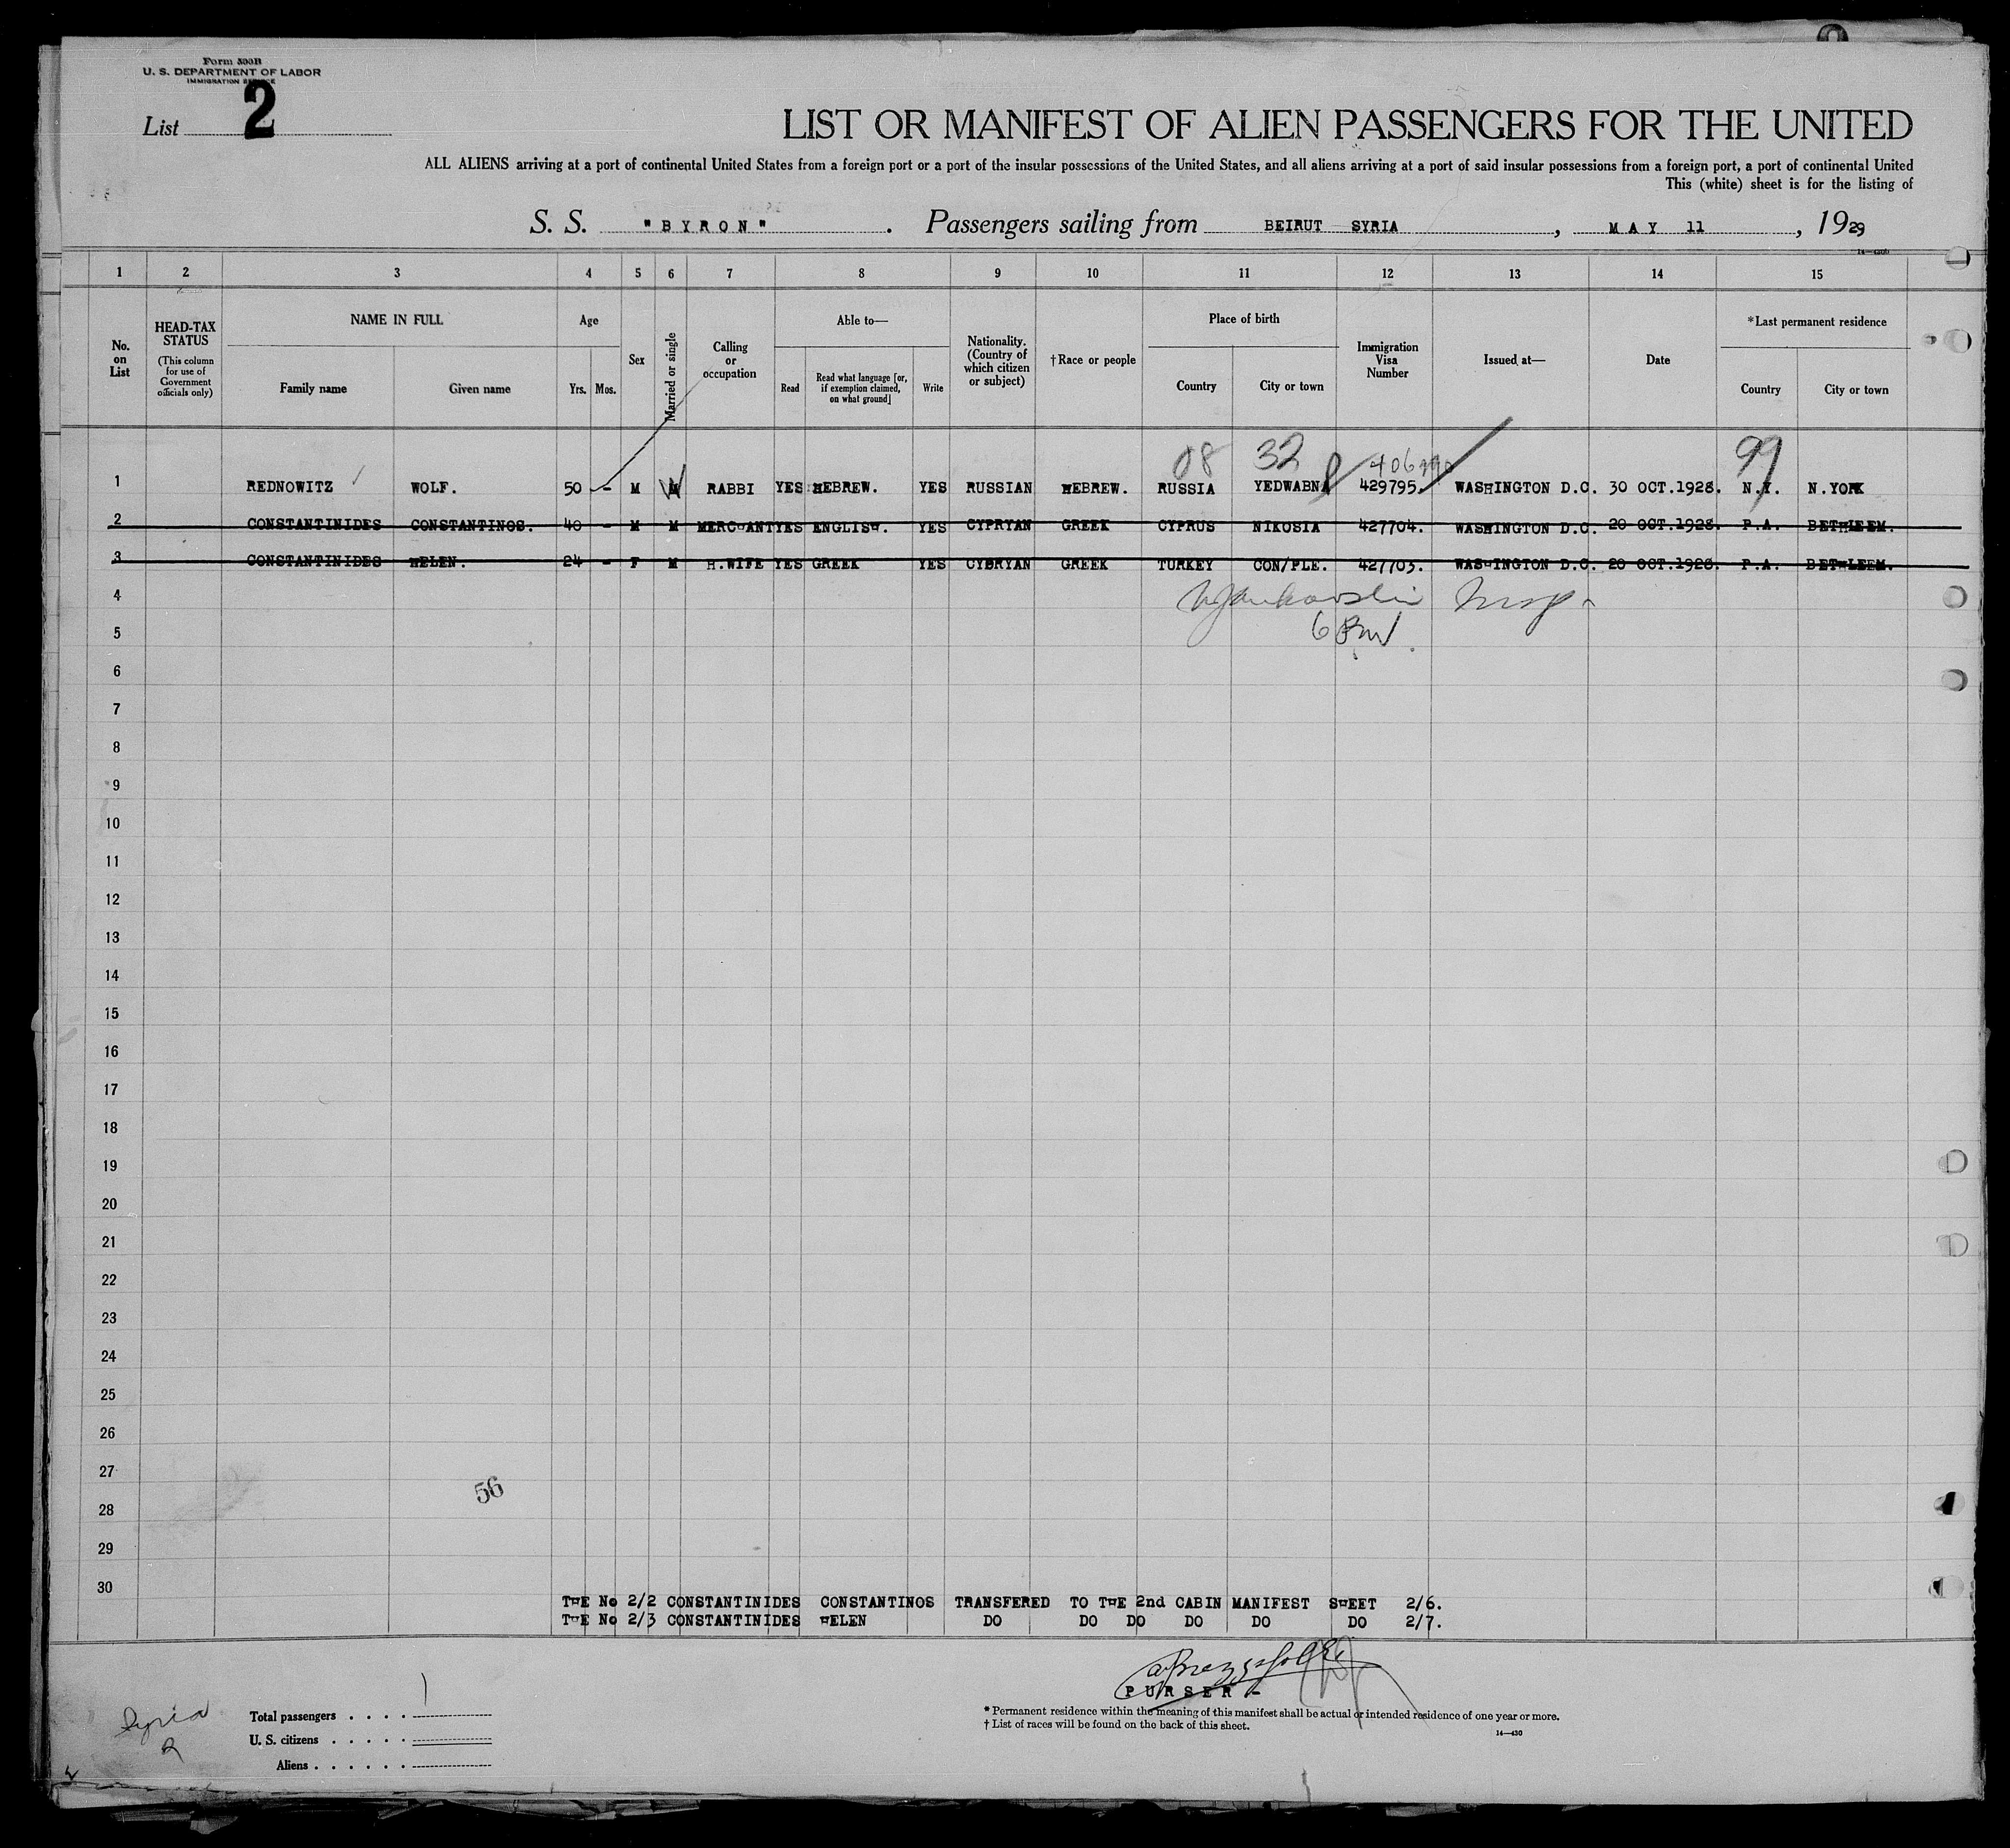 Form 500B
U. S. DEPARTMENT OF LABOR
IMMIGRATION SERVICE
List 2
LIST OR MANIFEST OF ALIEN PASSENGERS FOR THE UNITED
ALL ALIENS arriving at a port of continental United States from a foreign port or a port of the insular possessions of the United States, and all aliens arriving at a port of said insular possessions from a foreign port, a port of continental United
This (white) sheet is for the listing of
S. S. "BYRON". Passengers sailing from BEIRUT SYRIA, MAY 11, 1929
1 2 3 4 5 6 7 8 9 10 11 12 13 14 15
No. on List
HEAD-TAX STATUS
(This column for use of Government officials only)
NAME IN FULL
Family name Given name
Age
Yrs. Mos.
Sex
Married or single
Calling or occupation
Able to—
Read
Read what language [or, if exemption claimed, on what ground]
Write
Nationality. (Country of which citizen or subject)
†Race or people
Place of birth
Country City or town
Immigration Visa Number
Issued at—
Date
*Last permanent residence
Country City or town
08 32 99
1 REDNOWITZ WOLF. 50 - M M RABBI YES HEBREW. YES RUSSIAN HEBREW. RUSSIA YEDWABNA 429795. WASHINGTON D.C. 30 OCT.1928. N.Y. N.YORK
2 CONSTANTINIDES CONSTANTINOS. 40 - M M MERCHANT YES ENGLISH. YES CYPRYAN GREEK CYPRUS NIKOSIA 427704. WASHINGTON D.C. 20 OCT.1928. P.A. BETHLEEM.
3 CONSTANTINIDES HELEN. 24 - F M H.WIFE YES GREEK YES CYBRYAN GREEK TURKEY CON/PLE. 427703. WASHINGTON D.C. 20 OCT.1928. P.A. BETHLEEM.
4
5
6
7
8
9
10
11
12
13
14
15
16
17
18
19
20
21
22
23
24
25
26
27
56
28
29
30
THE No 2/2 CONSTANTINIDES CONSTANTINOS TRANSFERED TO THE 2nd CABIN MANIFEST SHEET 2/6.
THE No 2/3 CONSTANTINIDES HELEN DO DO DO DO DO DO 2/7.
PURSER -
* Permanent residence within the meaning of this manifest shall be actual or intended residence of one year or more.
† List of races will be found on the back of this sheet.
14—430
Syria
Total passengers . . . . 1
U. S. citizens . . . . .
Aliens . . . . . .